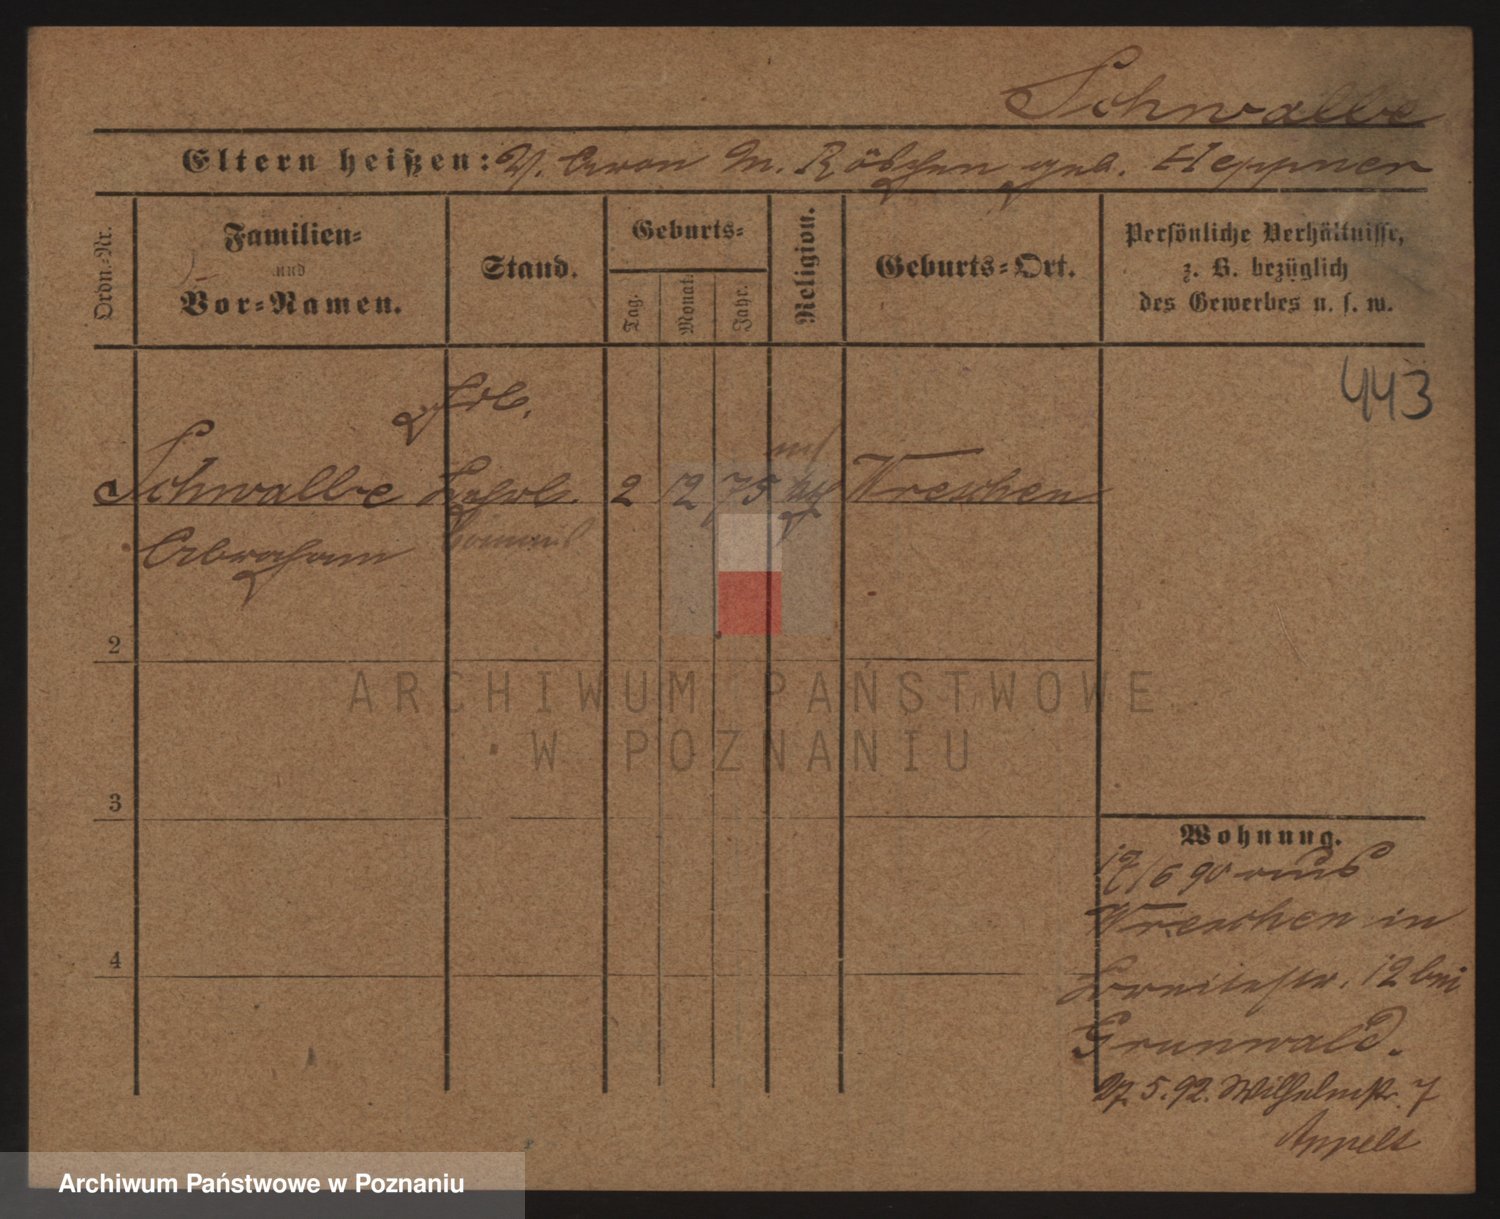 Schwalbe
Eltern heißen: V. Aron M. Röschen geb. Heppner
Ordn.-Nr.
Familien-
und
Vor-Namen.
Stand.
Geburts-
Tag.
Monat.
Jahr.
Religion.
Geburts-Ort.
Persönliche Verhältnisse,
z. B. bezüglich
des Gewerbes u. s. w.
443
Schwalbe Lehrl. 2 12 75 Wreschen
Abraham
2
ARCHIWUM PAŃSTWOWE
W POZNANIU
3
Wohnung.
17/6 90 aus
Wreschen in
Breitestr. 12 bei
Grunwald.
27.5.92. Wilhelmstr. 7
Appelt
4
Archiwum Państwowe w Poznaniu